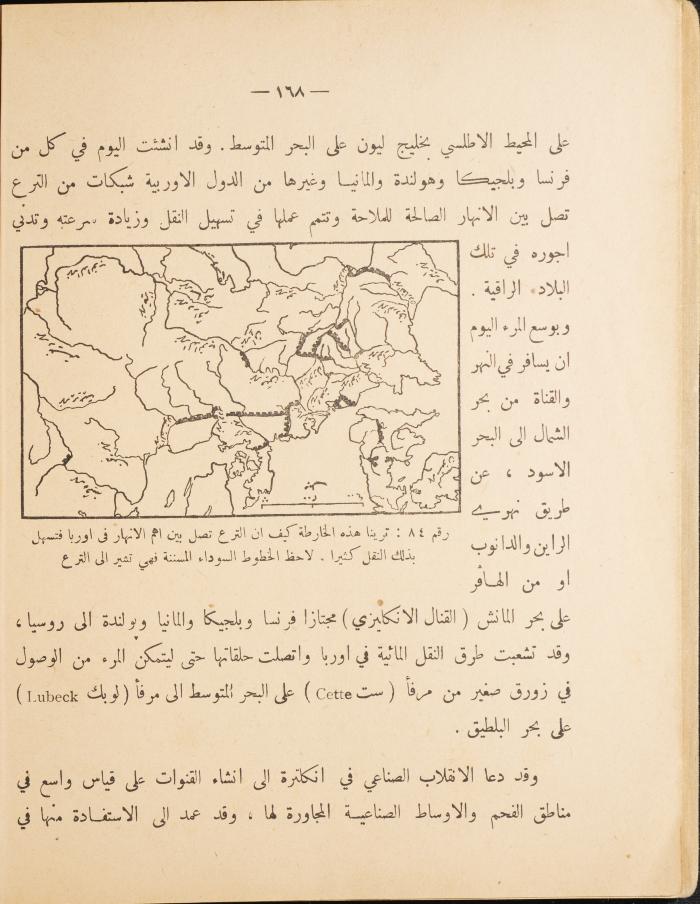 — ١٦٨ —
على المحيط الاطلسي بخليج ليون على البحر المتوسط. وقد انشئت اليوم في كل من
فرنسا وبلجيكا وهولندة والمانيا وغيرها من الدول الاوربية شبكات من الترع
تصل بين الانهار الصالحة للملاحة وتتمم عملها في تسهيل النقل وزيادة سرعته وتدني
اجوره في تلك
البلاد الراقية .
وبوسع المرء اليوم
ان يسافر في النهر
والقناة من بحر
الشمال الى البحر
الاسود ، عن
طريق نهري
الراين والدانوب
او من الهافر
رقم ٨٤ : ترينا هذه الخارطة كيف ان الترع تصل بين اهم الانهار في اوربا فتسهل
بذلك النقل كثيرا . لاحظ الخطوط السوداء المسننة فهي تشير الى الترع
على بحر المانش ( القنال الانكليزي ) مجتازا فرنسا وبلجيكا والمانيا وبولندة الى روسيا ،
وقد تشعبت طرق النقل المائية في اوربا واتصلت حلقاتها حتى ليتمكن المرء من الوصول
في زورق صغير من مرفأ ( ست Cette ) على البحر المتوسط الى مرفأ ( لوبك Lubeck )
على بحر البلطيق .
وقد دعا الانقلاب الصناعي في انكلترة الى انشاء القنوات على قياس واسع في
مناطق الفحم والاوساط الصناعية المجاورة لها ، وقد عمد الى الاستفادة منها في